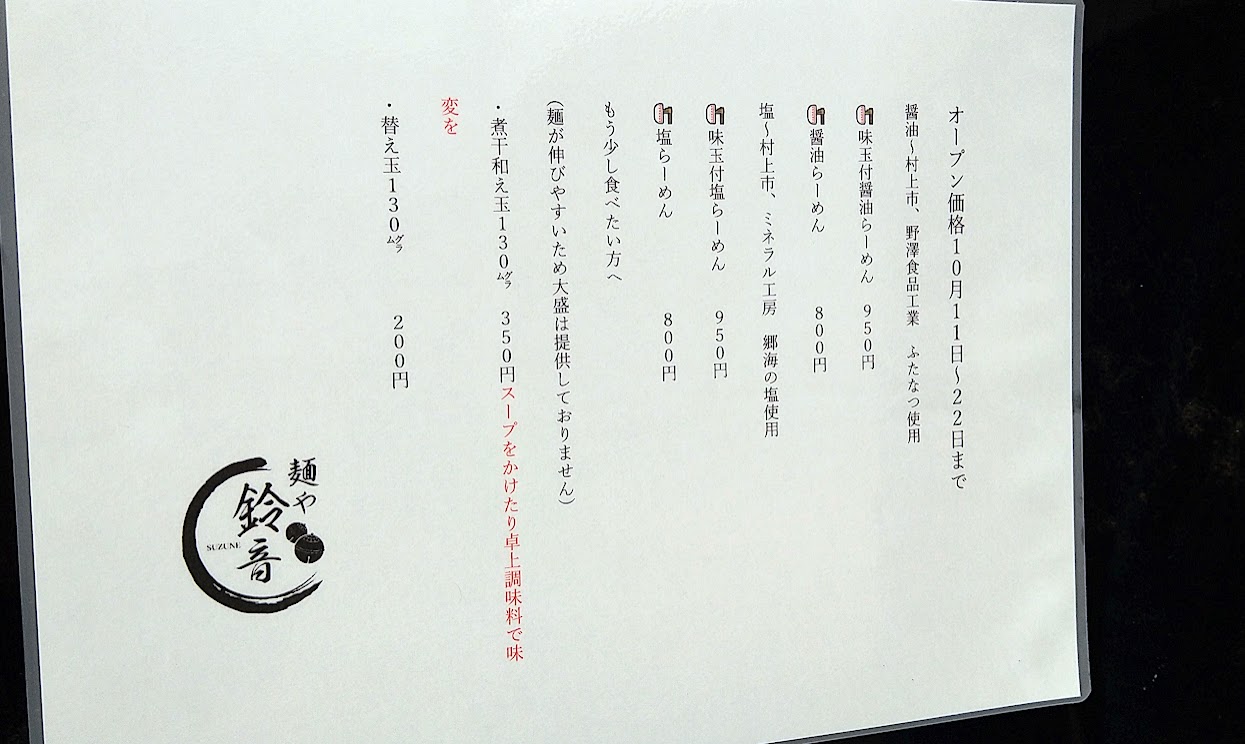 オープン価格10月11日~22日まで
醤油~村上市、野澤食品工業 ふたなつ使用
味玉付醤油らーめん 950円
醤油らーめん 800円
塩~村上市、ミネラル工房 郷海の塩使用
味玉付塩らーめん 950円
塩らーめん 800円
もう少し食べたい方へ
(麺が伸びやすいため大盛は提供しておりません)
・煮干和え玉130㌘ 350円スープをかけたり卓上調味料で味
変を
・替え玉130㌘ 200円
麺や
鈴音
SUZUNE